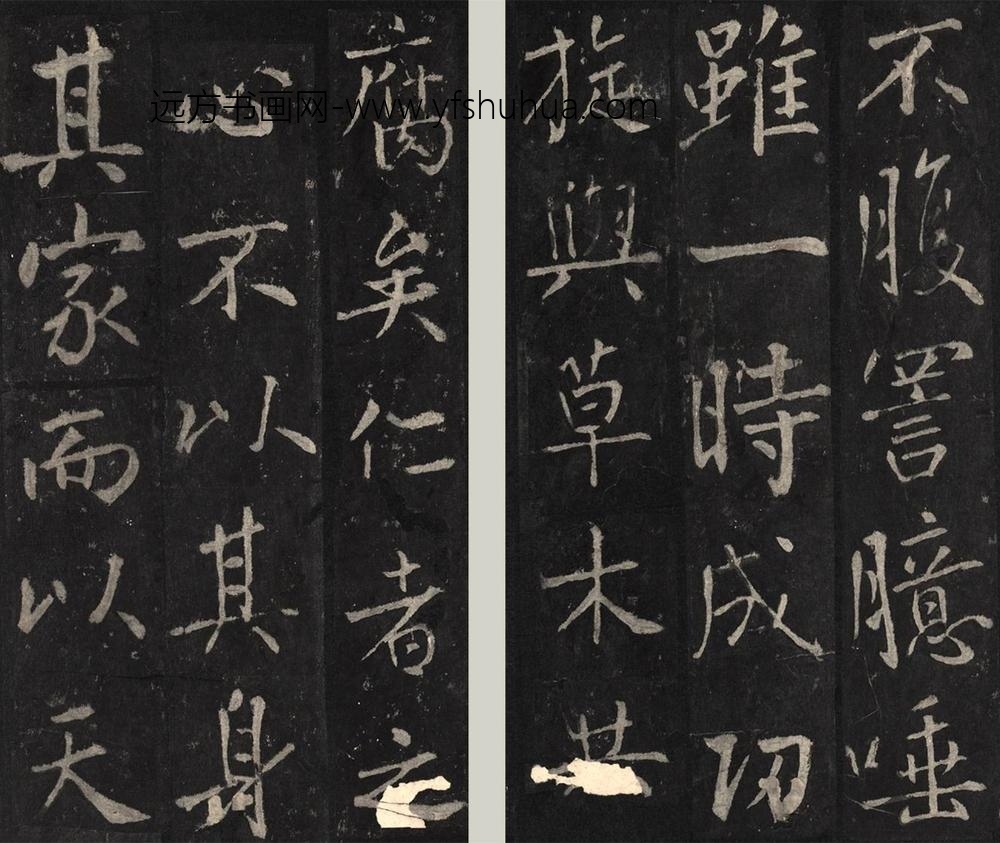 不腹詈臆唾
雖一時成功
旋與草木共
腐矣仁者之
心不以其身
其家而以天
远方书画网-www.yfshuhua.com